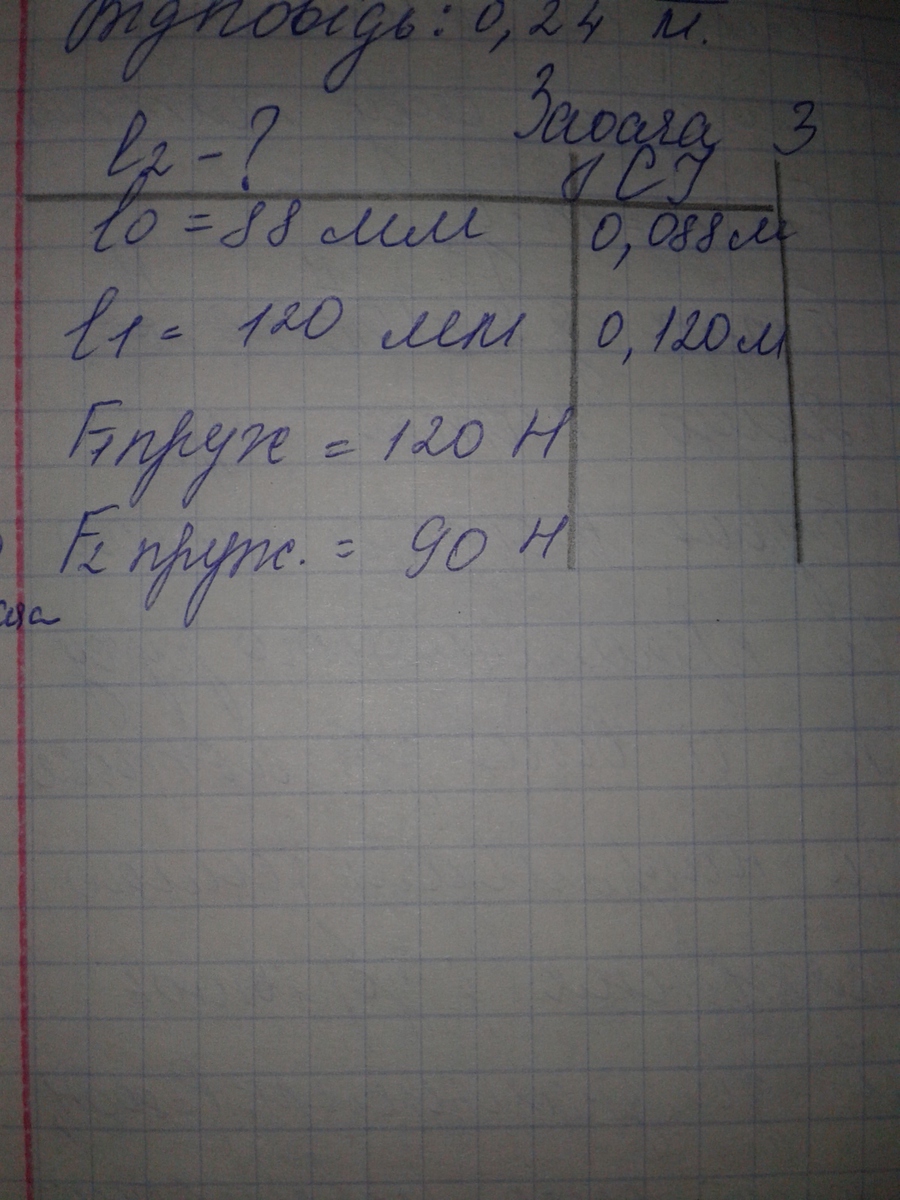 Відповідь: 0,24 м.
Задача 3
l2 - ?
СІ
l0 = 88 мм 0,088м
l1 = 120 мм 0,120м
F1 пруж = 120 Н
F2 пруж. = 90 Н